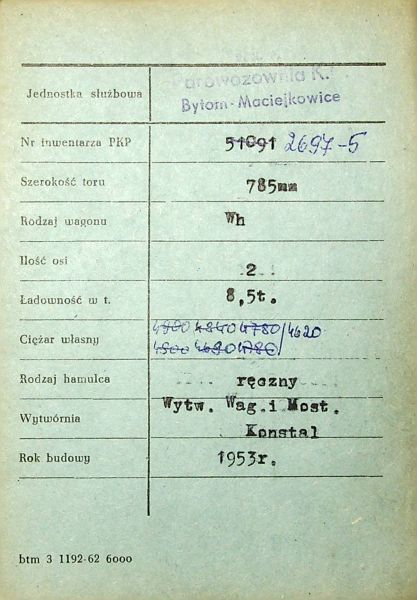 Parowozownia K.
Jednostka służbowa
Bytom-Maciejkowice
Nr inwentarza PKP 51091 2697-5
Szerokość toru 785mm
Rodzaj wagonu Wh
Ilość osi 2
Ładowność w t. 8,5t.
4840 4780/4620
Ciężar własny
Rodzaj hamulca ręczny
Wytw. Wag. i Most.
Wytwórnia
Konstal
Rok budowy 1953r.
btm 3 1192-62 6000